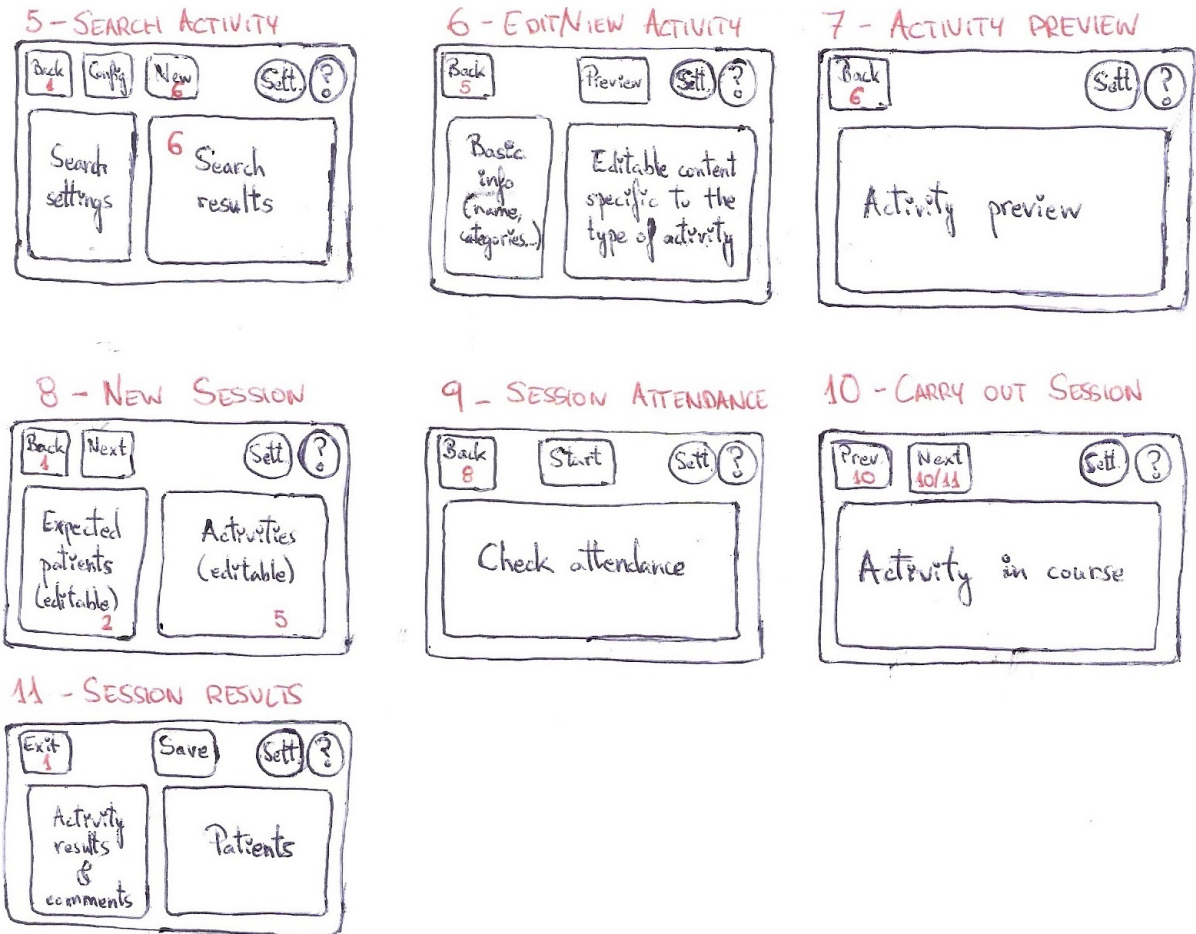 5 - SEARCH ACTIVITY
Back
1
Config
New
6
Sett.
?
Search
settings
6 Search
results
6 - EDIT/VIEW ACTIVITY
Back
5
Preview
Sett.
?
Basic
info
(name,
categories...)
Editable content
specific to the
type of activity
7 - ACTIVITY PREVIEW
Back
6
Sett.
?
Activity preview
8 - NEW SESSION
Back
1
Next
Sett.
?
Expected
patients
(editable)
2
Activities
(editable)
5
9 - SESSION ATTENDANCE
Back
8
Start
Sett.
?
Check attendance
10 - CARRY OUT SESSION
Prev.
10
Next
10/11
Sett.
?
Activity in course
11 - SESSION RESULTS
Exit
1
Save
Sett.
?
Activity
results
&
comments
Patients